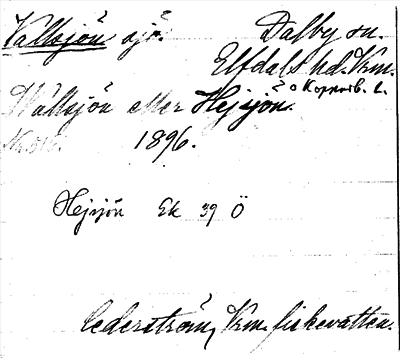 Vallsjön sjö. Dalby sn.
Elfdals hd. Vrm.
o Kopparb. l.
Wallsjön eller Hejsjön.
1896.
Hejsjön Ek 39 Ö
Cederström, Vrm. fiskevatten.